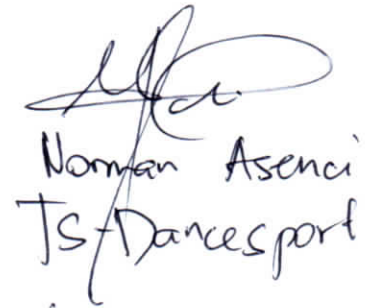 Norman Asenci
TS-Dancesport